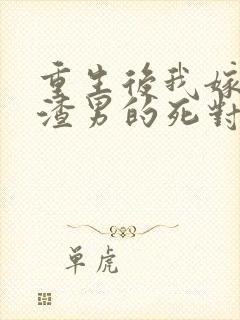 重生後我嫁
渣男的死對
单虎